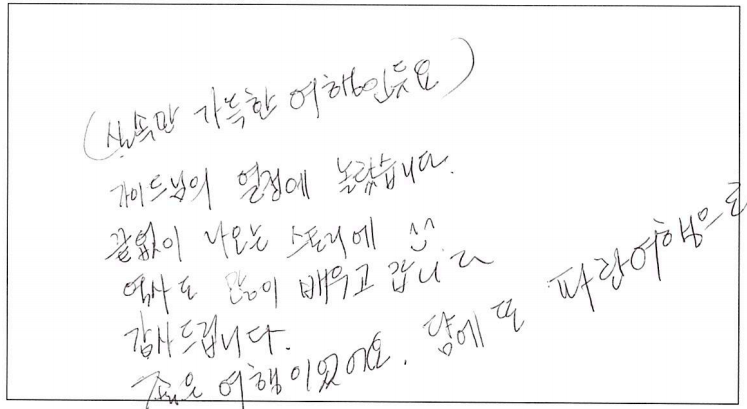 (실속만 가득한 여행인듯요)
가이드님의 열정에 놀랐습니다.
끝없이 나오는 스토리에 ^^
역사도 많이 배우고 갑니다
감사드립니다.
좋은 여행이었어요. 담에 또 파란여행으로